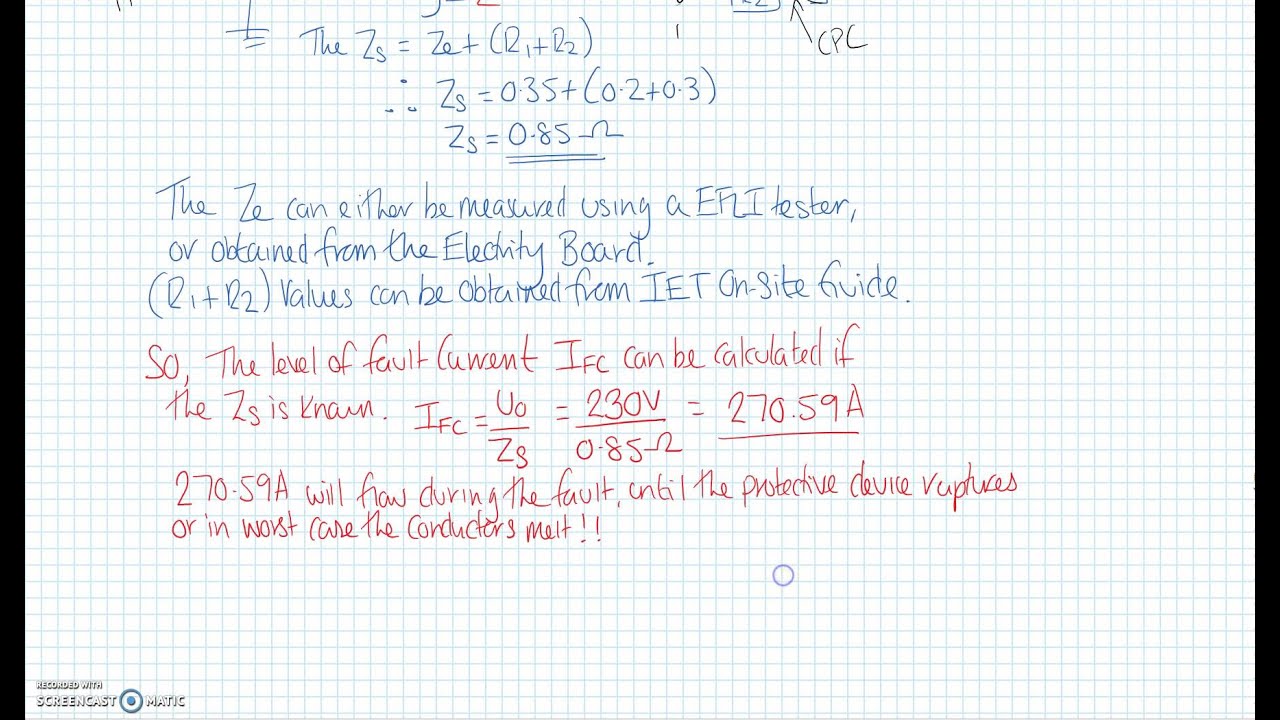 CPC
The Zs = Ze + (R1 + R2)
∴ Zs = 0.35 + (0.2 + 0.3)
Zs = 0.85 Ω
The Ze can either be measured using a EFLI tester,
or obtained from the Electrity Board.
(R1 + R2) Values can be obtained from IET On-Site Guide.
So, The level of fault Current IFC can be calculated if
the Zs is known. IFC = Uo/Zs = 230V/0.85Ω = 270.59A
270.59A will flow during the fault, until the protective device ruptures
or in worst case the conductors melt!!
RECORDED WITH
SCREENCAST MATIC